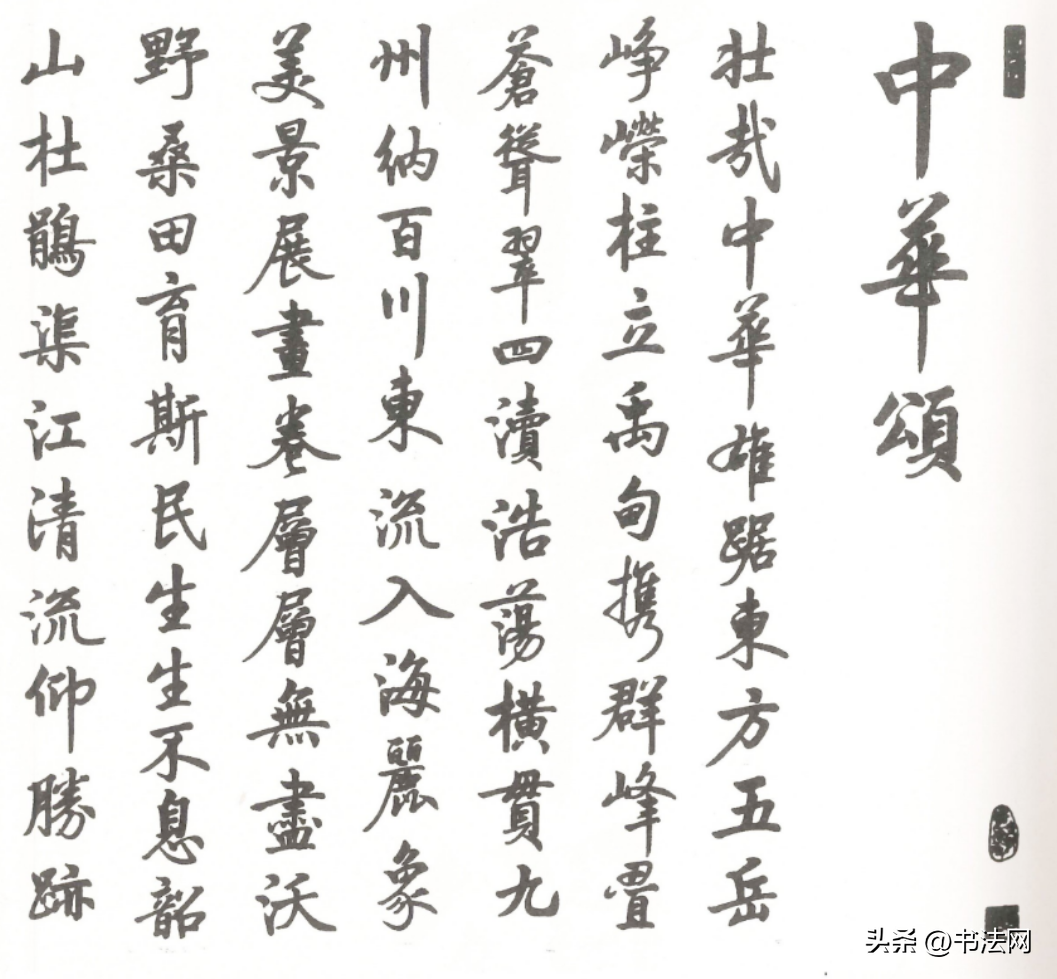 中華頌
壯哉中華雄踞東方五岳
峥嶸柱立禹甸携群峰疊
蒼聳翠四瀆浩蕩橫貫九
州納百川東流入海麗象
美景展畫卷層層無盡沃
野桑田育斯民生生不息韶
山杜鵑渠江清流仰勝跡
头条 @书法网